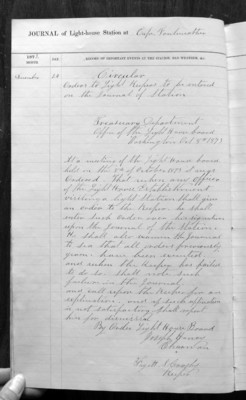 JOURNAL of Light-house Station at Cape
MONTH
DAY
RECORD OF IMPORTANT EVENTS AT THE STATION, BAD WEATHER, &c.
Circular
Orders to Light Keepers to be entered
on the Journal of Station
Treasury Department
Office of the Light House board
Washington Oct
At a meeting of the Light House board
held on the of October 1873 it was
Ordered That when any officer
of the Light House Establishment
visiting a Light Station shall give
an order to the Keeper he shall
enter such order over his signature
upon the Journal of the Station
He shall also examine the Journal
to see that all orders previously
given have been executed
and when the Keeper has failed
to do so shall note such
failure in the Journal
and call upon the Keeper for an
explanation and if such explanation
is not satisfactory shall report
him for dismissal
By Order Light House Board
Joseph Henry
Chairman
Keeper